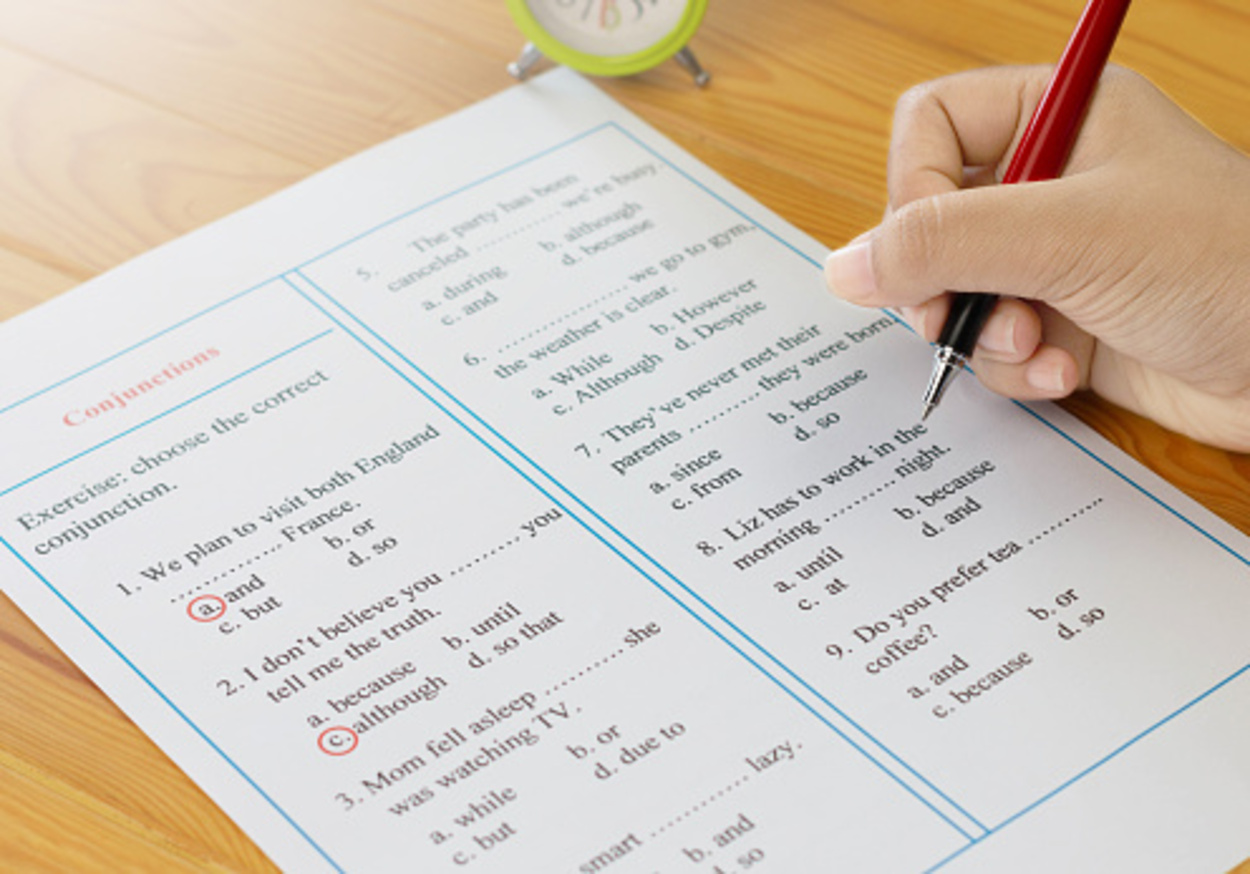 Conjunctions
Exercise: choose the correct
conjunction.
1. We plan to visit both England
............ France.
a. and b. or
c. but d. so
2. I don't believe you .......... you
tell me the truth.
a. because b. until
c. although d. so that
3. Mom fell asleep .......... she
was watching TV.
a. while b. or
c. but d. due to
smart ............ lazy.
b. and
d. so
5. The party has been
canceled .......... we're busy.
a. during b. although
c. and d. because
6. ................ we go to gym,
the weather is clear.
a. While b. However
c. Although d. Despite
7. They've never met their
parents .......... they were born.
a. since b. because
c. from d. so
8. Liz has to work in the
morning .......... night.
a. until b. because
c. at d. and
9. Do you prefer tea ...........
coffee?
a. and b. or
c. because d. so